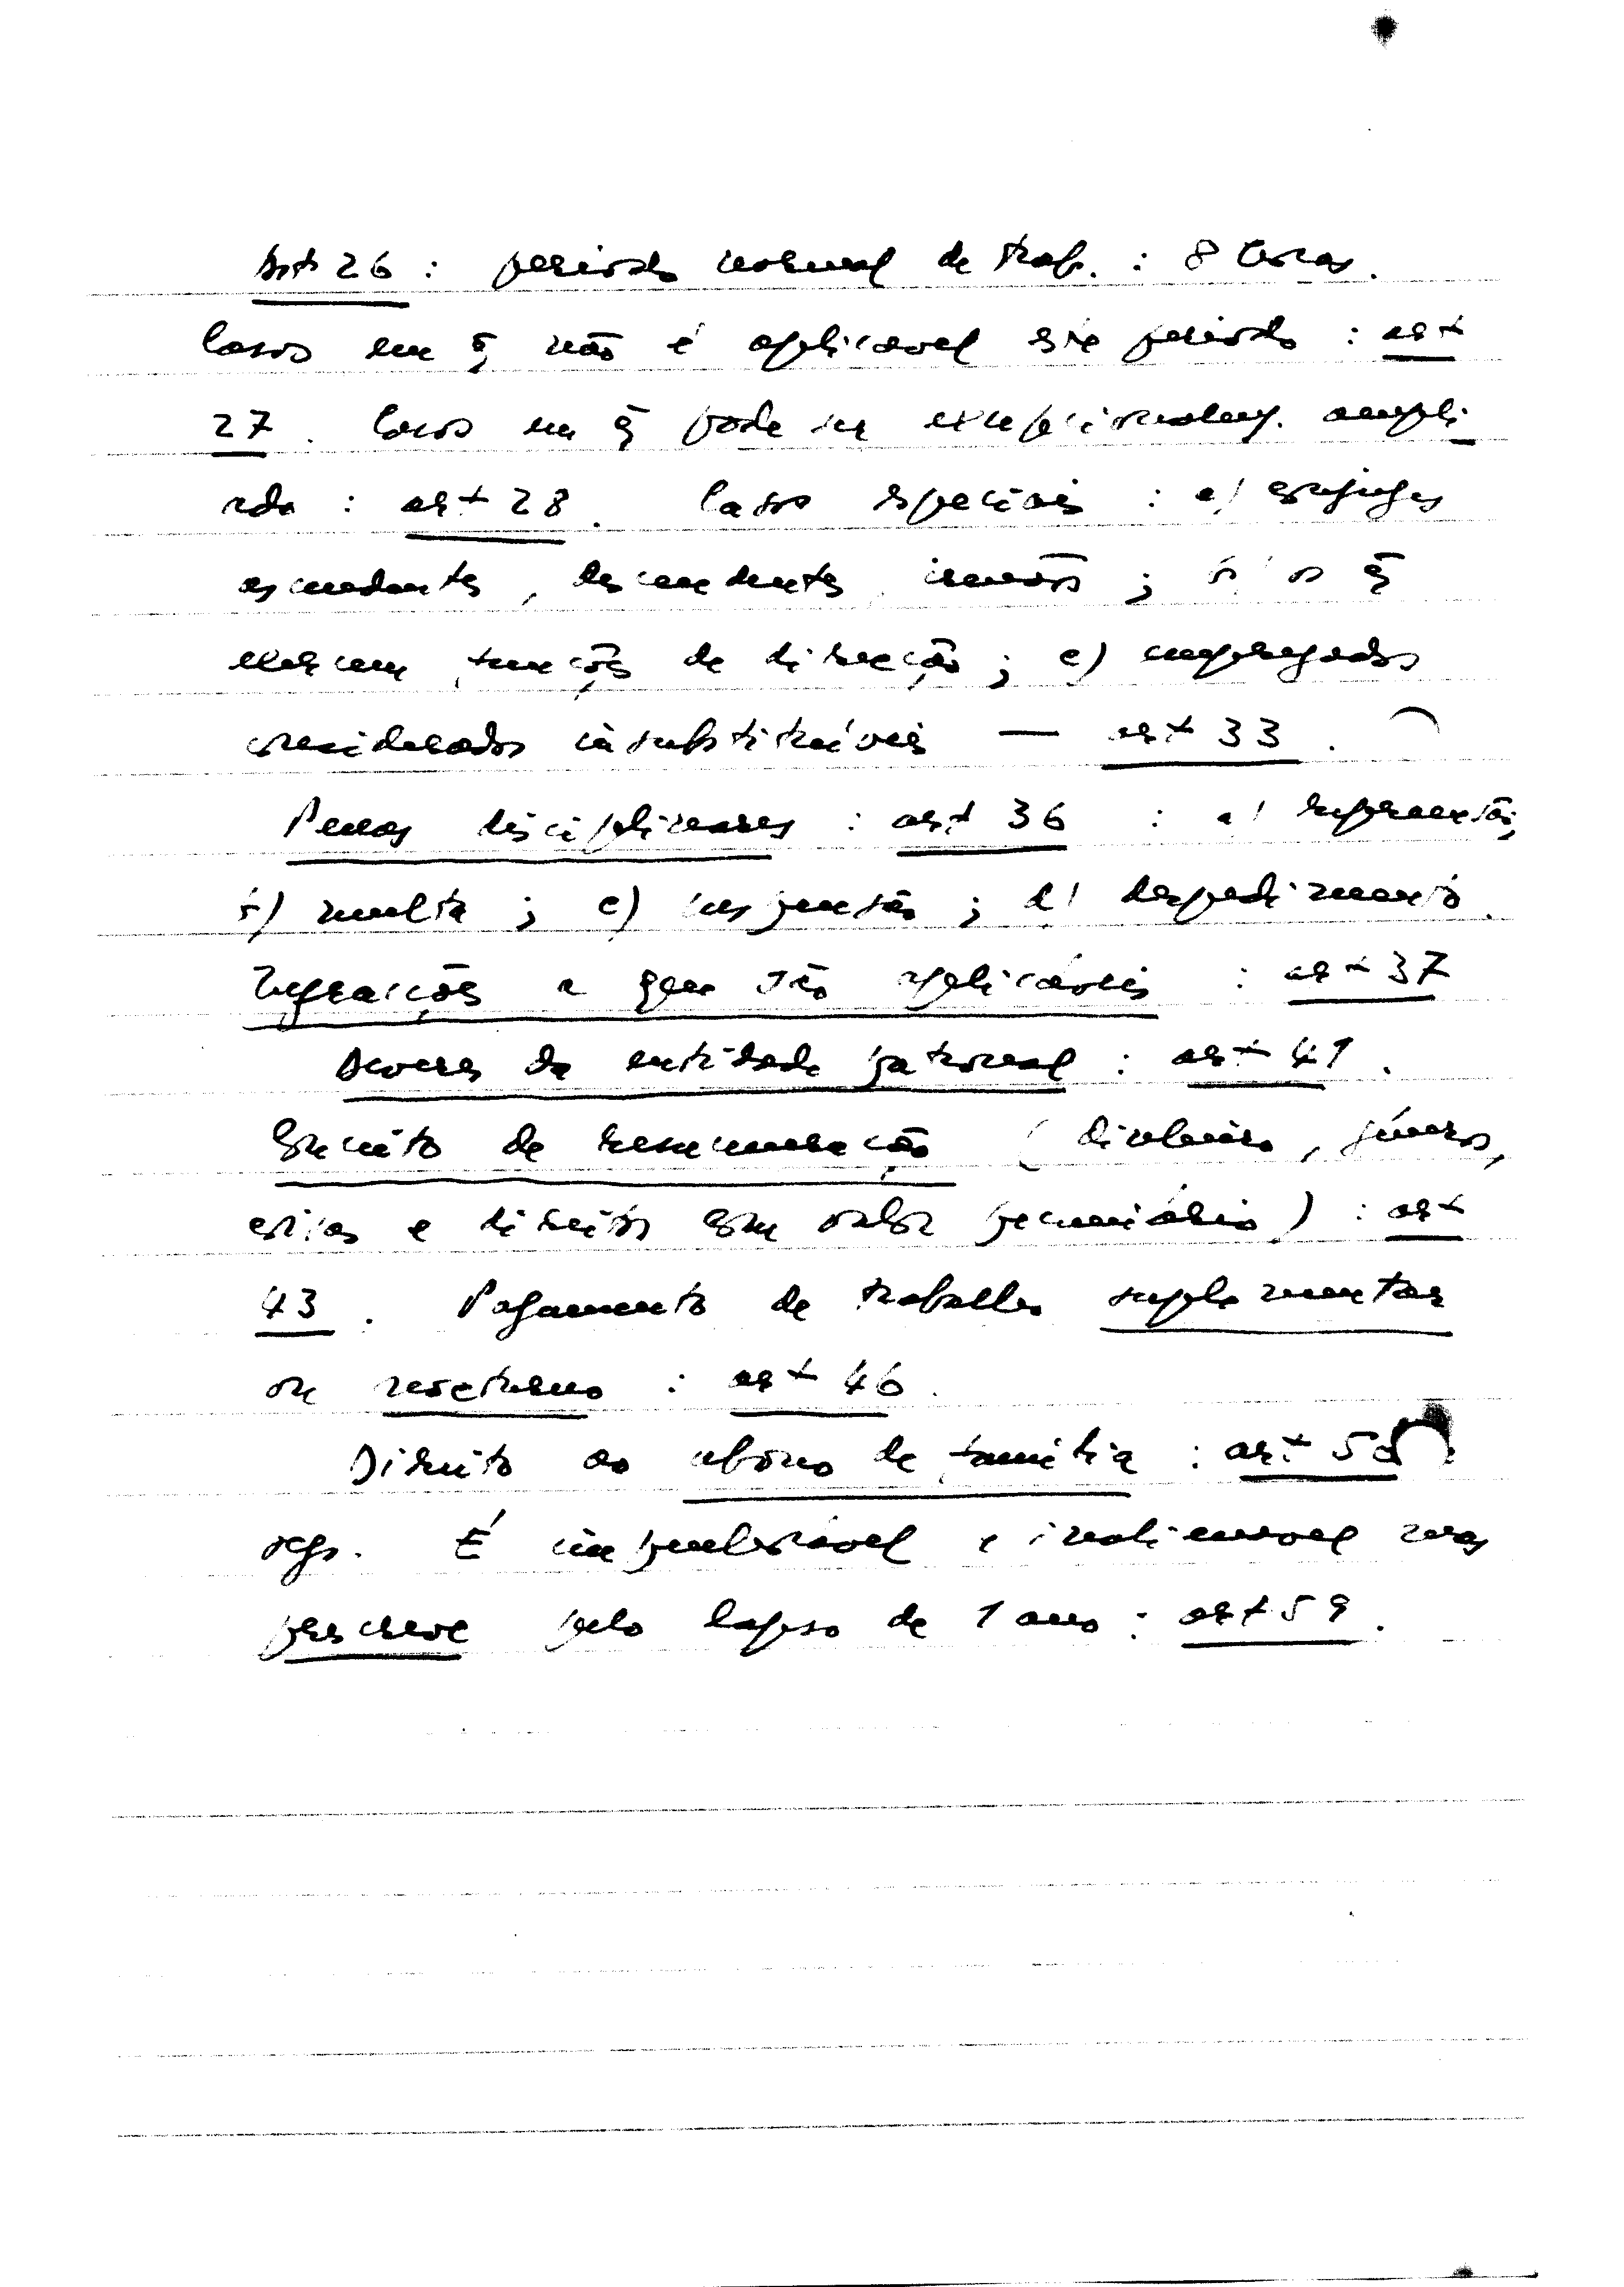 Art 26 : período normal de trab. : 8 horas.
Casos em q̃ não é aplicavel este período : art
27. Casos em q̃ pode ser excepcionalmt. ampli
ado : art 28. Casos especiais : a) conjuges
ascendentes, descendentes, irmãos ; b) os q̃
exercem funções de direcção ; c) empregados
considerados insubstituíveis — art 33.
Penas disciplinares : art 36 : a) repreensão;
b) multa ; c) suspensão ; d) despedimento.
Infracções a que são aplicáveis : art 37
Deveres da entidade patronal : art 41.
Conceito de remuneração (dinheiro, géneros,
coisas e direitos com valor pecuniário) : art
43. Pagamento de trabalho suplementar
ou nocturno : art 46.
Direito ao abono de família : art
segs. É impenhorável e inalienavel mas
prescreve pelo lapso de 1 ano : art 59.